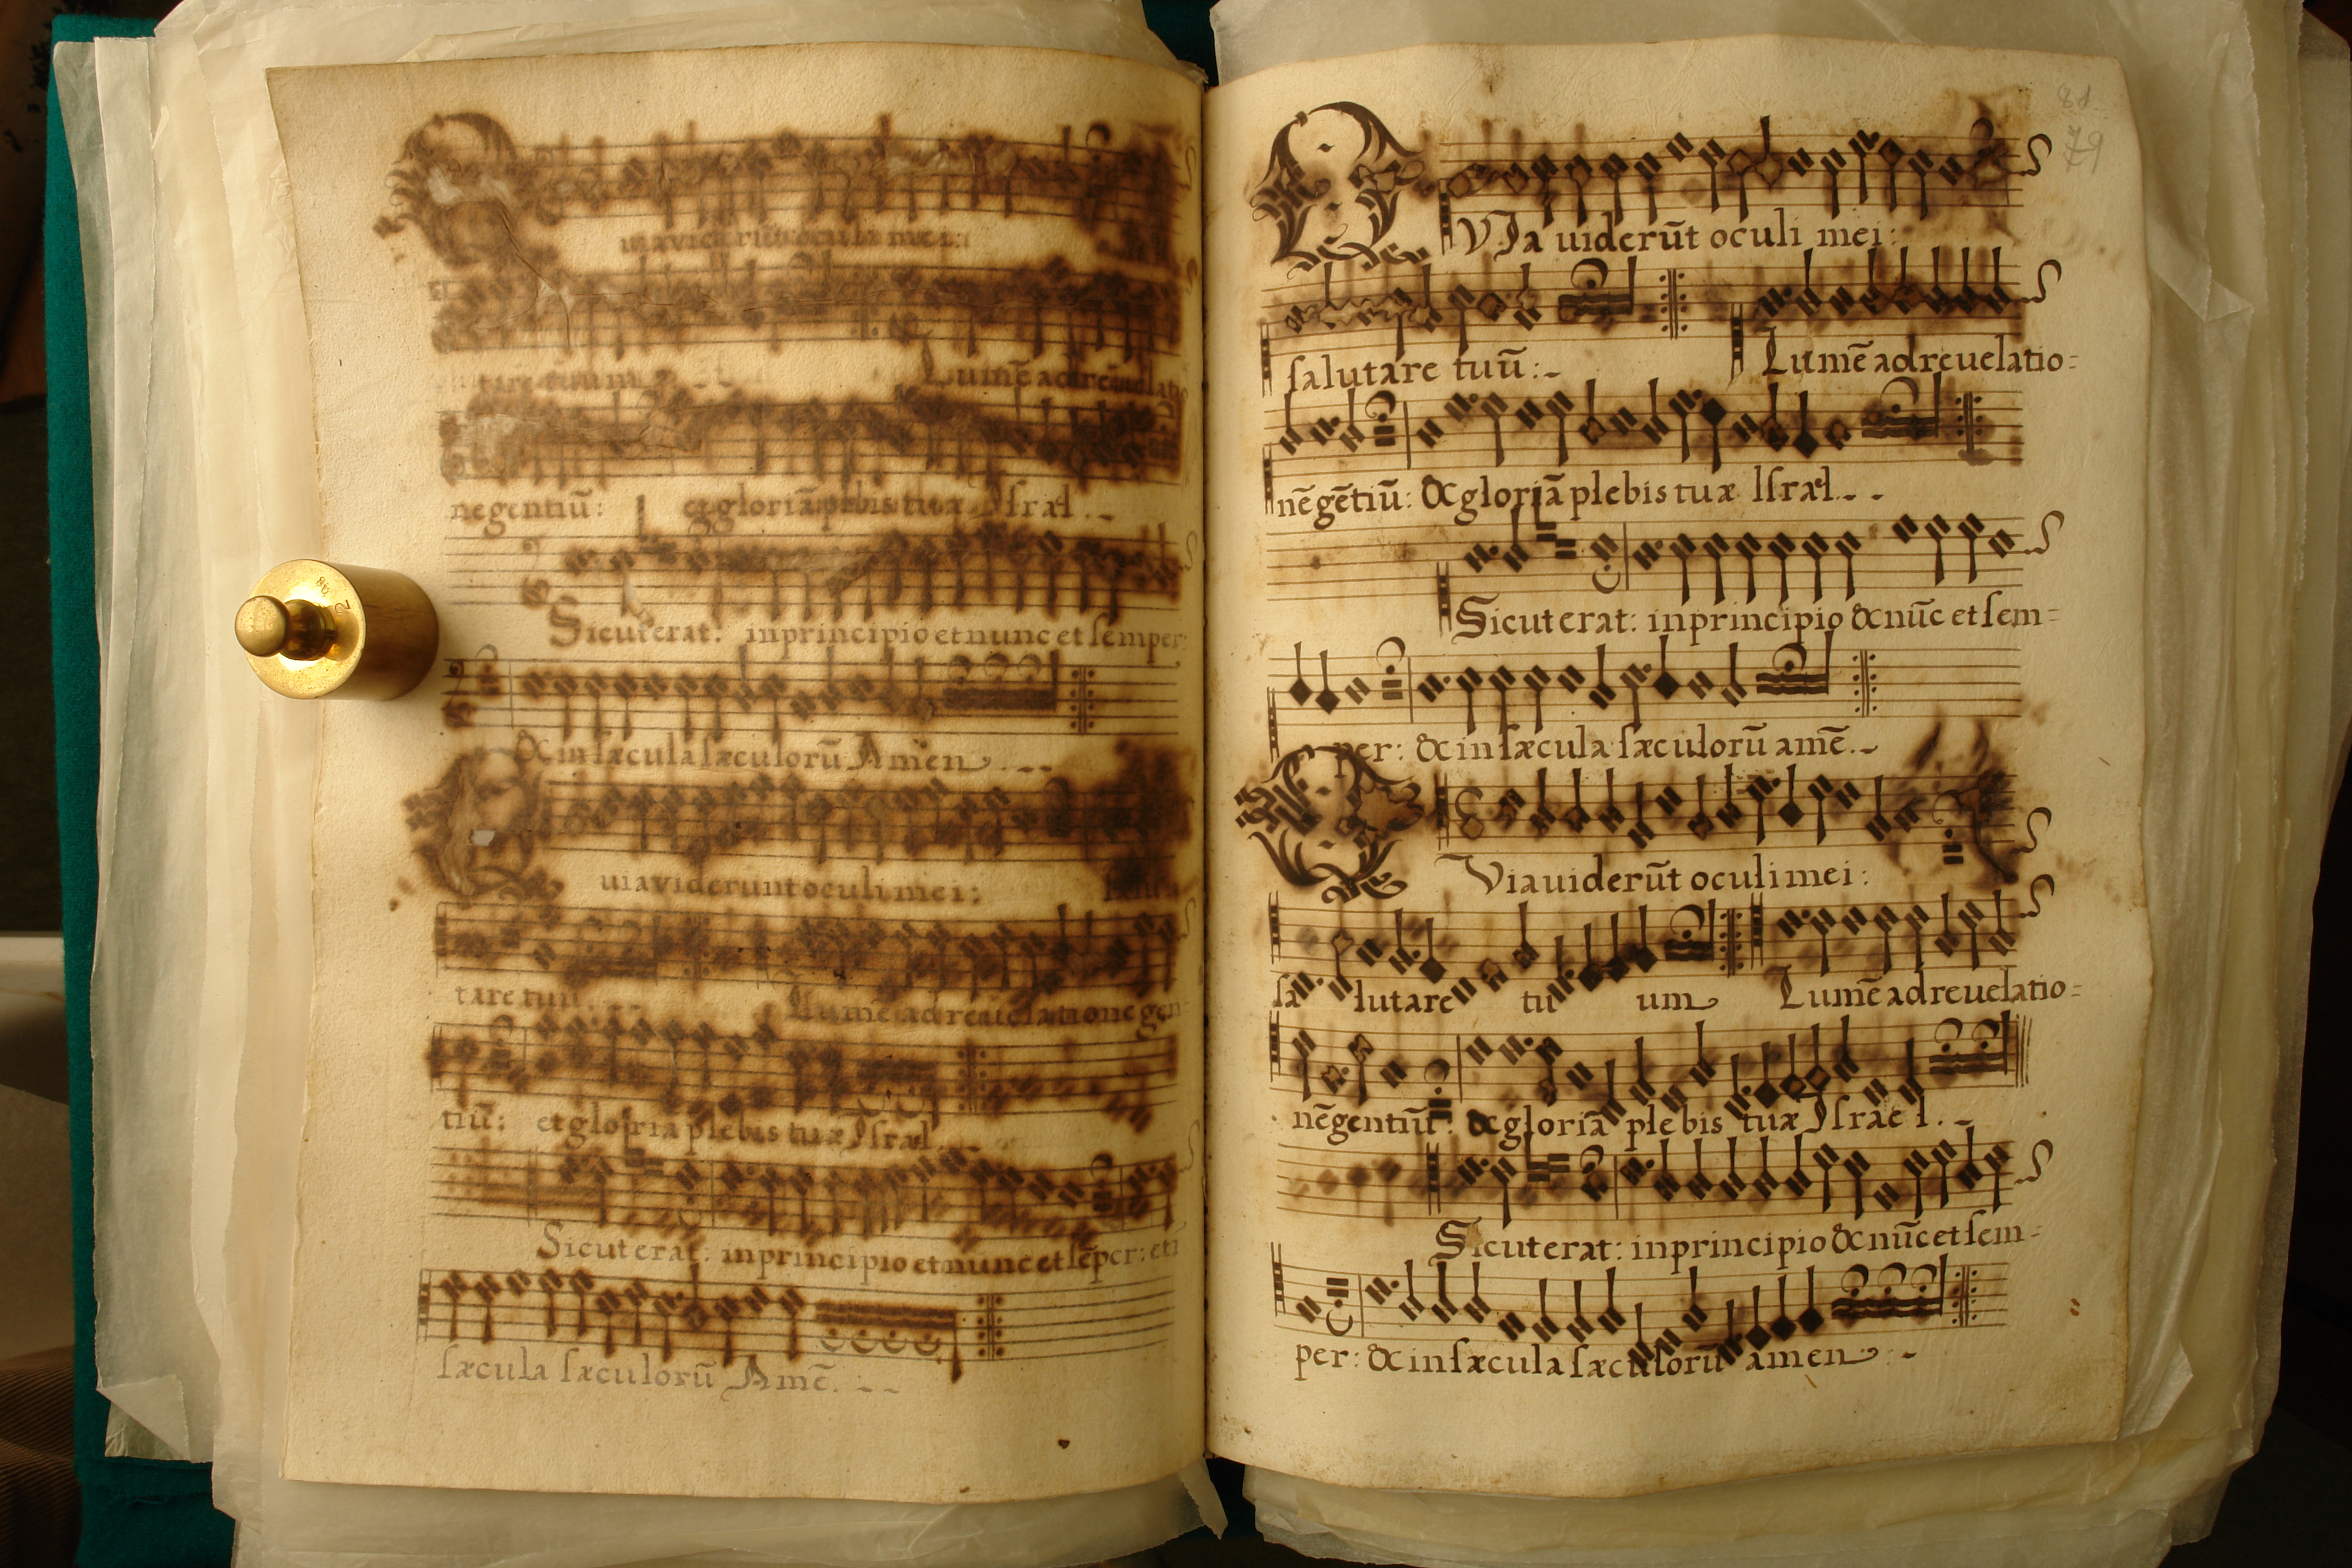 uiaviderunt oculi mei:
tare tuum Lumē ad reuelati
negentiū: et gloriā plebis tuæ Israł.
Sicut erat: in principio et nunc et semper:
& in sæcula sæculorū Amen.
uia viderunt oculi mei;
tare tuū. Lumē ad reuelatione gen
tiū: et gloria plebis tuæ Israł.
Sicut erat: in principio et nunc et sēper: et i
sæcula sæculorū Amē.
79
QVIa uiderūt oculi mei:
salutare tuū: Lumē ad reuelatio=
nē gētiū: & gloriā plebis tuæ Israł.
Sicut erat: in principio & nūc et sem=
per: & in sæcula sæculorū amē.
QVia uiderūt oculi mei:
sa lutare tu um Lumē ad reuelatio=
nē gentiū: & gloriā plebis tuæ Israel.
Sicut erat: in principio & nūc et sem=
per: & in sæcula sæculorū amen.